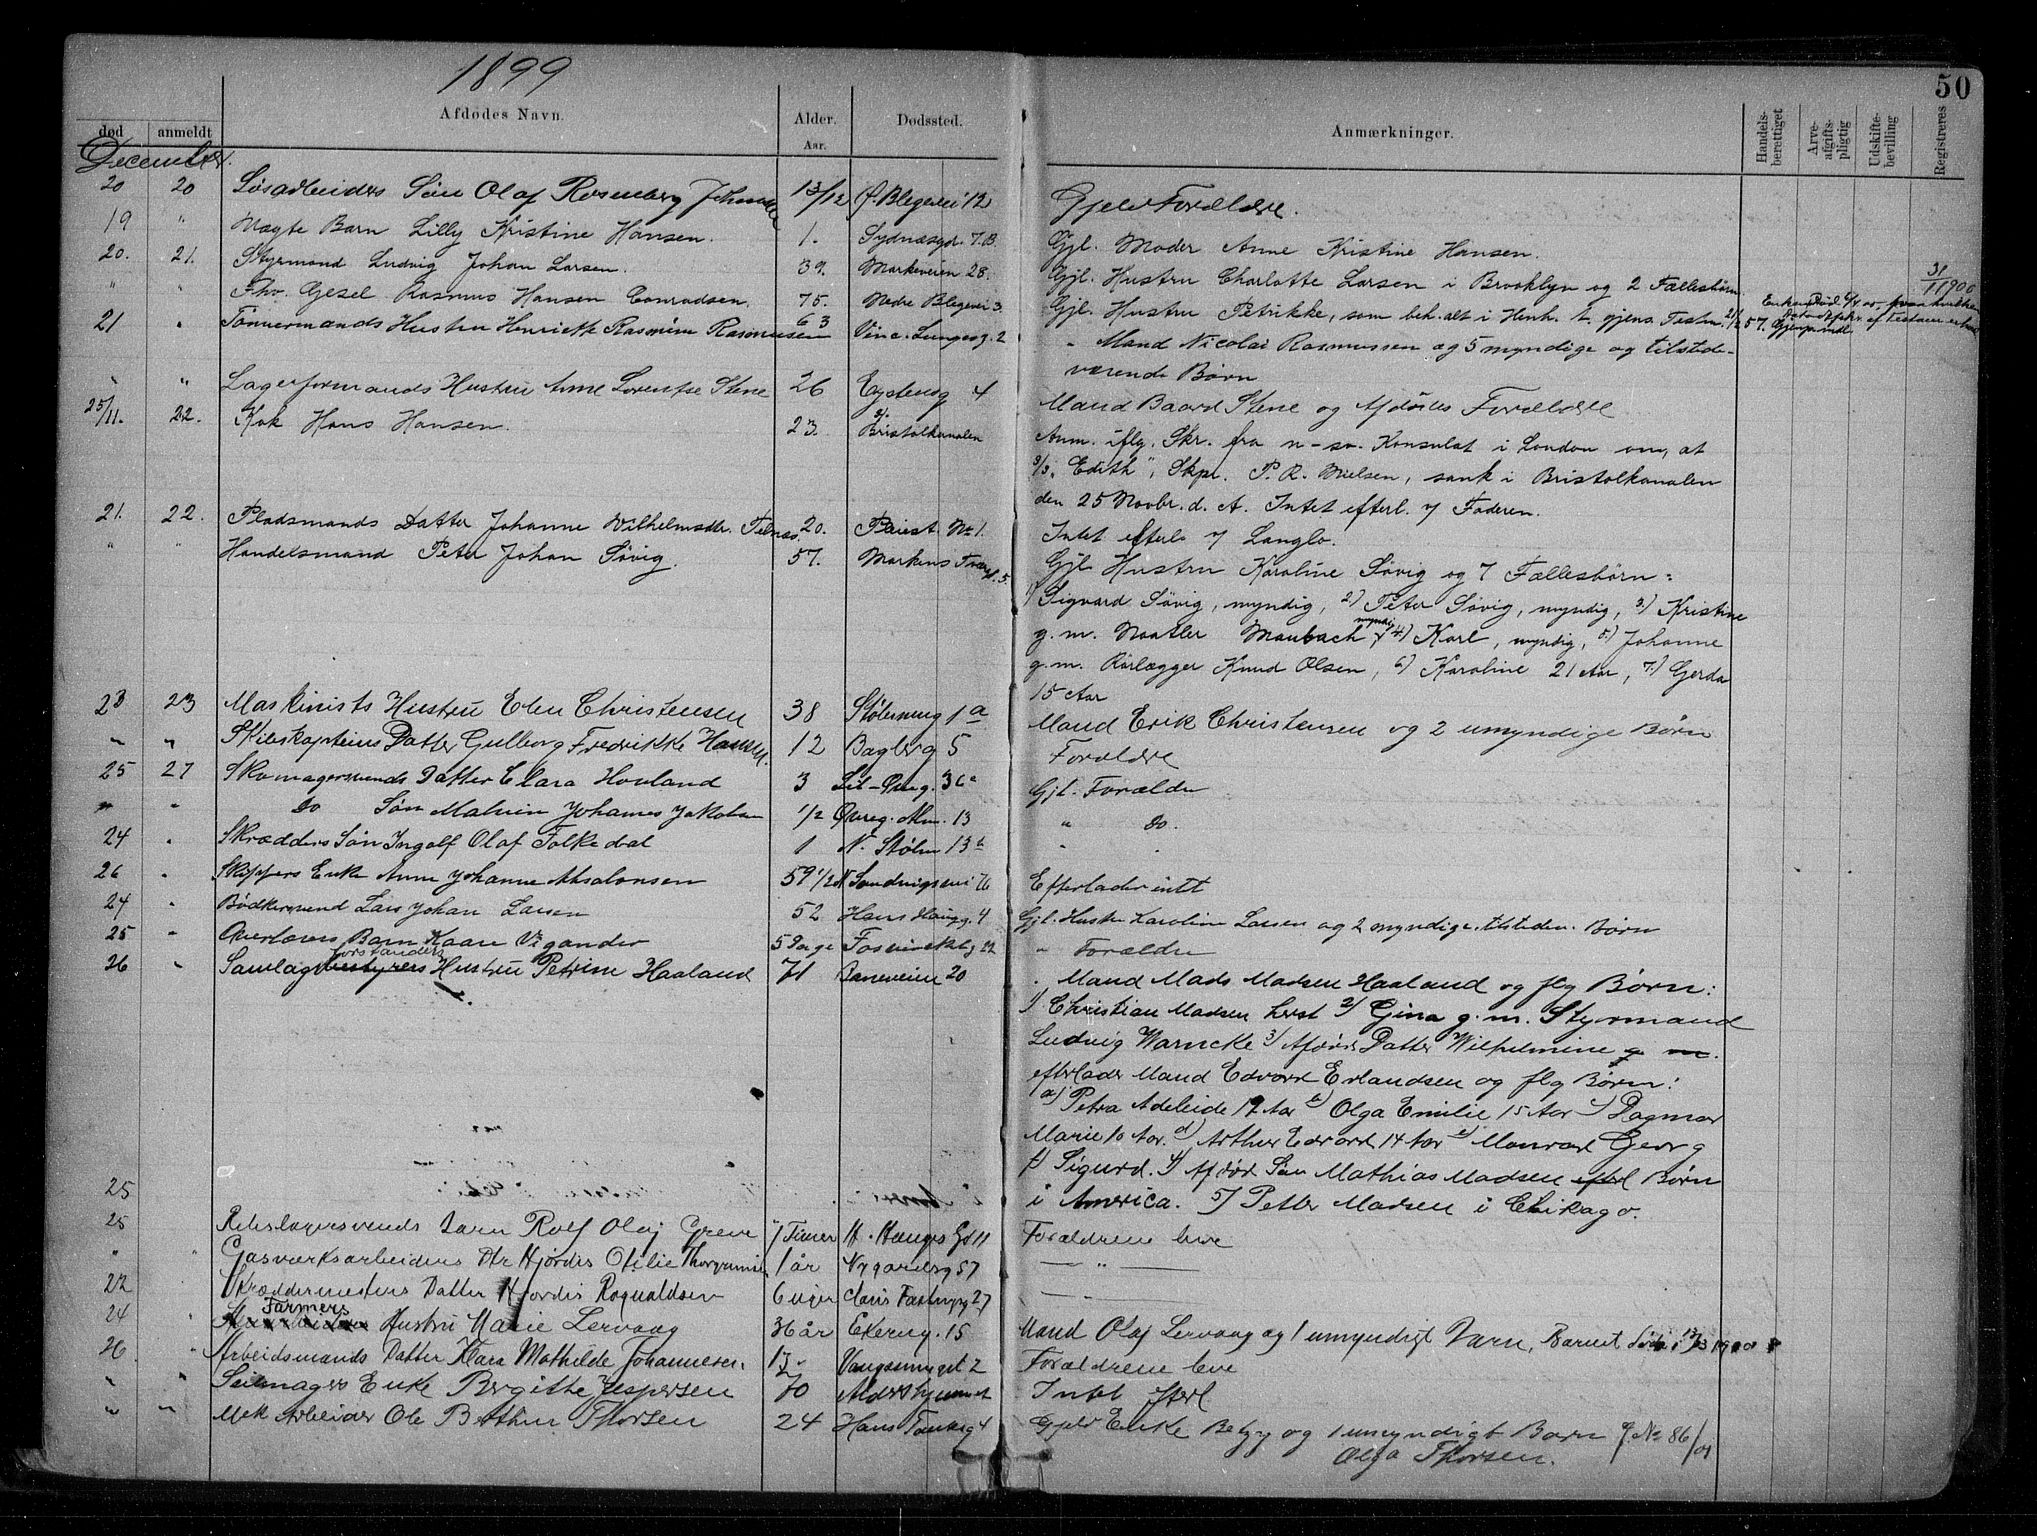 1899
50
død
anmeldt
Afdødes Navn.
Alder.
Aar.
Dødssted.
Anmærkninger.
Handels-berettiget
Arve-afgifts-pligtig
Udskifte-bevilling
Registreres
December.
20 20 Løsarbeiders Søn Olaf Rosenberg 13/12 Ø. Blegevei 12 Gjelv Forældre.
19 " Uægte Barn Lilly Kristine Hansen. 1. Sydnæsgd. 7.B. Gjl. Moder Anne Kristine Hansen.
20. 21. Styrmand Ludvig Johan Larsen. 39. Markeveien 28. Gjl. Hustru Charlotte Larsen i Brooklyn og 2 Fællesbørn 31/1 1900
" " Fhv. Gesel Rasmus Hansen Conradsen. 75. Nedre Blegevei 3. Gjl. Hustru Petrikke, som beh. alt i Henh. t. gjens. Testm.
21 " Tømmermands Hustru Henriette Rasmine Rasmussen 63 Vinc. Lungesg. 2 " Mand Nicolai Rasmussen og 5 myndige og tilstede-
værende Børn
" " Lagerformands Hustru Anne Lorentse Stene 26 Eystensg 4 Mand Baard Stene og Afdødes Forældre
25/11. 22. Kok Hans Hansen. 23. Bristolkanalen Anm. iflg. Skr. fra n-sv. Konsulat i London om, at
S/S "Edith", Skpr. P. R. Nielsen, sank i Bristolkanalen
den 25 Novbr. d. A. Intet efterl. 7 Faderen.
21. 22. Pladsmands Datter Johanne Vilhelmsdtr. Telnæs 20. Pleiest. No 1. Intet efterl. 7 Langlo.
" " Handelsmand Peter Johan Søvig. 57. Markens Tværgd. 5. Gjl. Hustru Karoline Søvig og 7 Fællesbørn:
1) Sigvard Søvig, myndig, 2) Peter Søvig, myndig, 3) Kristine
g. m. Naatler Maubach myndig, 4) Karl, myndig, 5) Johanne
g. m. Rørlægger Knud Olsen, 6) Karoline 21 Aar, 7) Gerda
15 Aar
23 23 Maskinists Hustru Elen Christensen 38 Stølesmug 1a Mand Erik Christensen og 2 umyndige Børn
" " Skibskapteins Datter Gulborg Fredrikke Hansen. 12 Bagberg 5 Forældre
25 27 Skomagersvends Datter Clara Hovland 3 Lil-Øvreg. 36a Gjl. Forældre
" " Do Søn Malvin Johannes Jakobsen 1/2 Øvreg. Alm. 13 " Do.
24 " Skrædders Søn Ingolf Olaf Folkedal 1 N. Stølen 13b " .
26 " Skippers Enke Anne Johanne Absalonsen 59 1/2 N Sandvigsvei 76 Efterlader intt
24 " Bødkersvend Lars Johan Larsen 52 Hans Haugsg. 4 Gjl. Hustru Karoline Larsen og 2 myndige tilsteden. Børn
25 " Overlærers Barn Kaare Vigander 5 Dage Fosvinckelsg 22 " Forældre
26 " Samlagsbestyrers Forstanders Hustru Petrine Haaland 71 Baneveien 20 " Mand Mads Madsen Haaland og flg Børn:
1) Christian Madsen herst 2) Gina g. m. Styrmand
Ludvig Warncke 3) Afdød Datter Wilhelmine g m.
efterlader Mand Edvard Erlandsen og flg Børn:
a) Petra Adeleide 17 Aar b) Olga Emilie 15 Aar c) Dagmar
Marie 10 Aar. d) Arthur Edvard 14 Aar e) Monrad Georg
f) Sigurd. 4) Afdød Søn Mathias Madsen efterl Børn
25 i America. 5) Petter Madsen i Chikago.
25 Rebslagersvends Barn Rolf Olaf Greve 7 Timer H. Hauges Gd 11 Forældrene leve
" " Gasværksarbeiders Dtr Hjørdis Otilie 1 år Nygardsg 57 — " —
22 Skræddermesters Datter Hjordis Rognaldsen 6 uger Claus Fastingsg 27 — " —
24 " Farmers Hustru Marie Lervaag 36 år Ekerng. 15 Mand Olaf Lervaag og 1 umyndigt Barn, Barnet død i 1900
26. " Arbeidsmands Datter Klara Mathilde Johannesen. 13 " Vangssmuget 2 Forældrene leve
" " Seilmagers Enke Bergitte Jespersen 70 Aldershjemmet Intet efterl
" " Mek Arbeider Ole Berthin Thorsen 24 Hans Tanksg 4 Gjelv Enke Betzy og 1 umyndigt Barn J. No 86/01
Olga Thorsen.